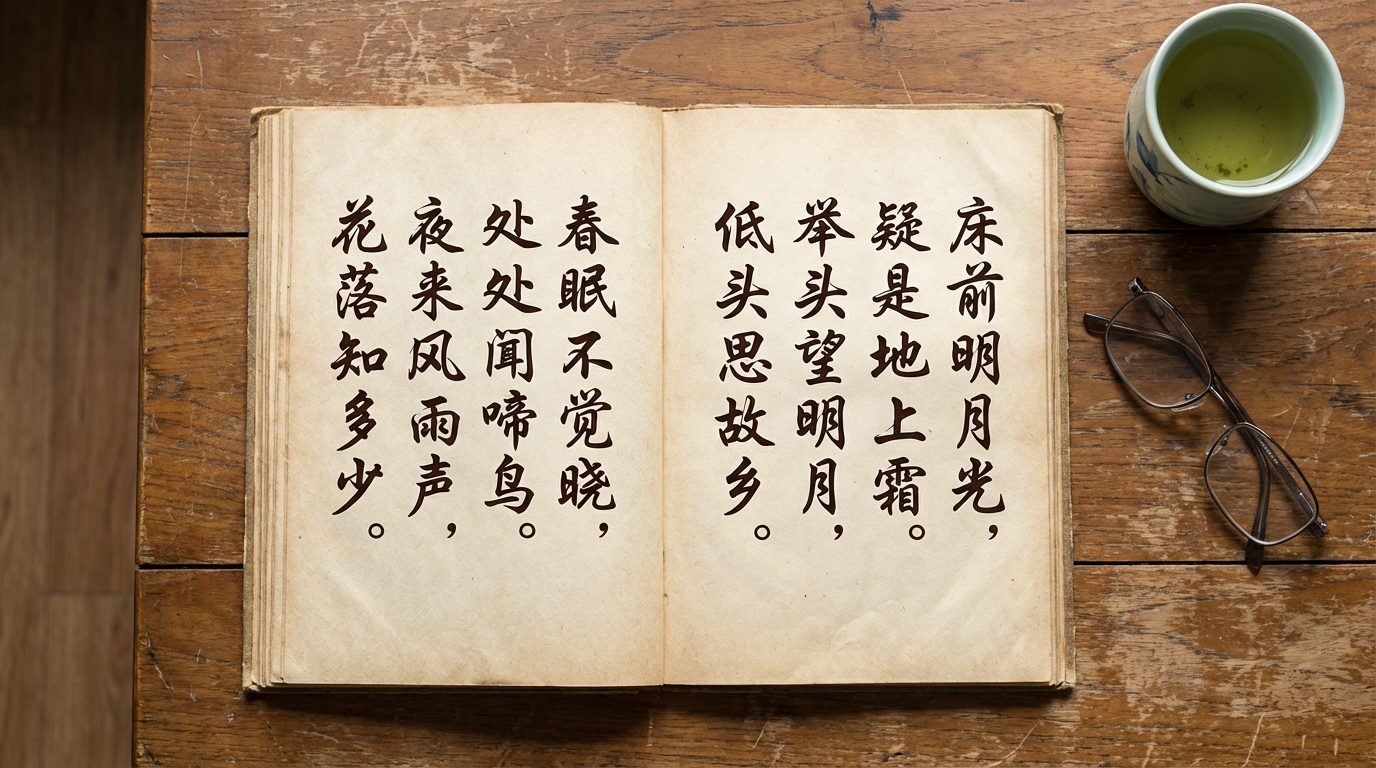 床前明月光，
疑是地上霜。
举头望明月，
低头思故乡。
春眠不觉晓，
处处闻啼鸟。
夜来风雨声，
花落知多少。